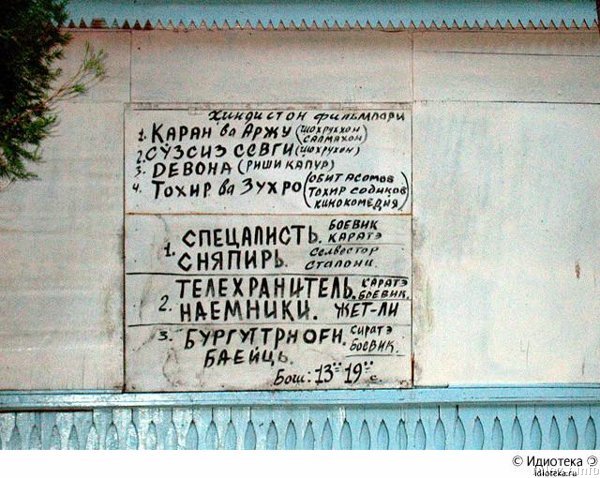 Хиндистон фильмлари
1. КАРАН ва АРЖУ (ШОХРУХХОН) (САЛМАХОН)
2. СУЗСИЗ СЕВГИ (ШОХРУХОН)
3. DЕВОНА (РИШИ КАПУР)
4. ТОХИР ва ЗУХРО (ОБИТ АСОМОВ
ТОХИР СОДИКОВ
КИНОКОМЕДИЯ)
1. СПЕЦАЛИСТЬ. БОЕВИК
КАРАТЭ
СНЯПИРЬ. Селвестор
Сталони.
2. ТЕЛЕХРАНИТЕЛЬ. КАРАТЭ
БОЕВИК.
НАЕМНИКИ. ЖЕТ-ЛИ
3. БУРГУТТРНОГИ. СИРАТЭ
БОЕВИК.
БАЕЙЦЬ.
Бош: 13⁰⁰ 19⁰⁰ с.
© Идиотека
idioteka.ru